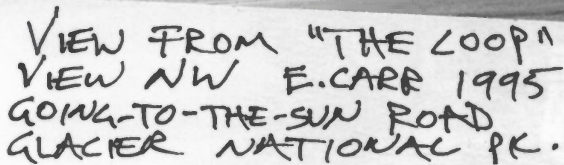 VIEW FROM "THE LOOP"
VIEW NW E.CARR 1995
GOING-TO-THE-SUN ROAD
GLACIER NATIONAL PK.